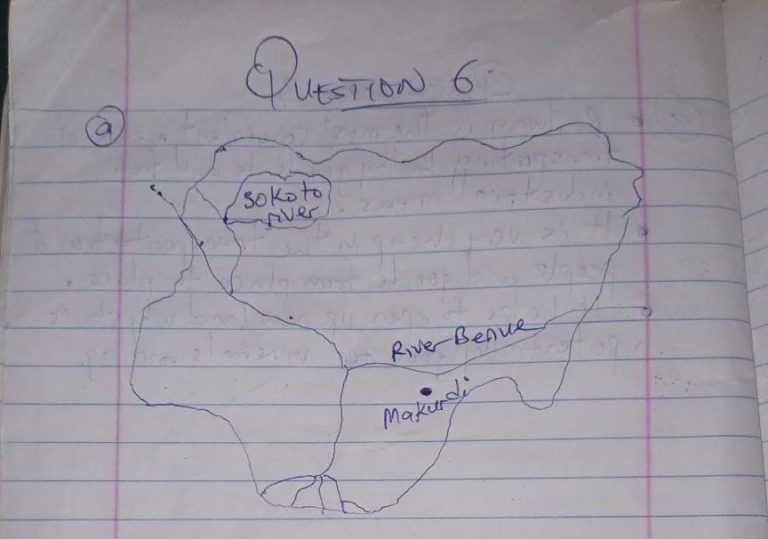 QUESTION 6
a
Sokoto
river
River Benue
Makurdi